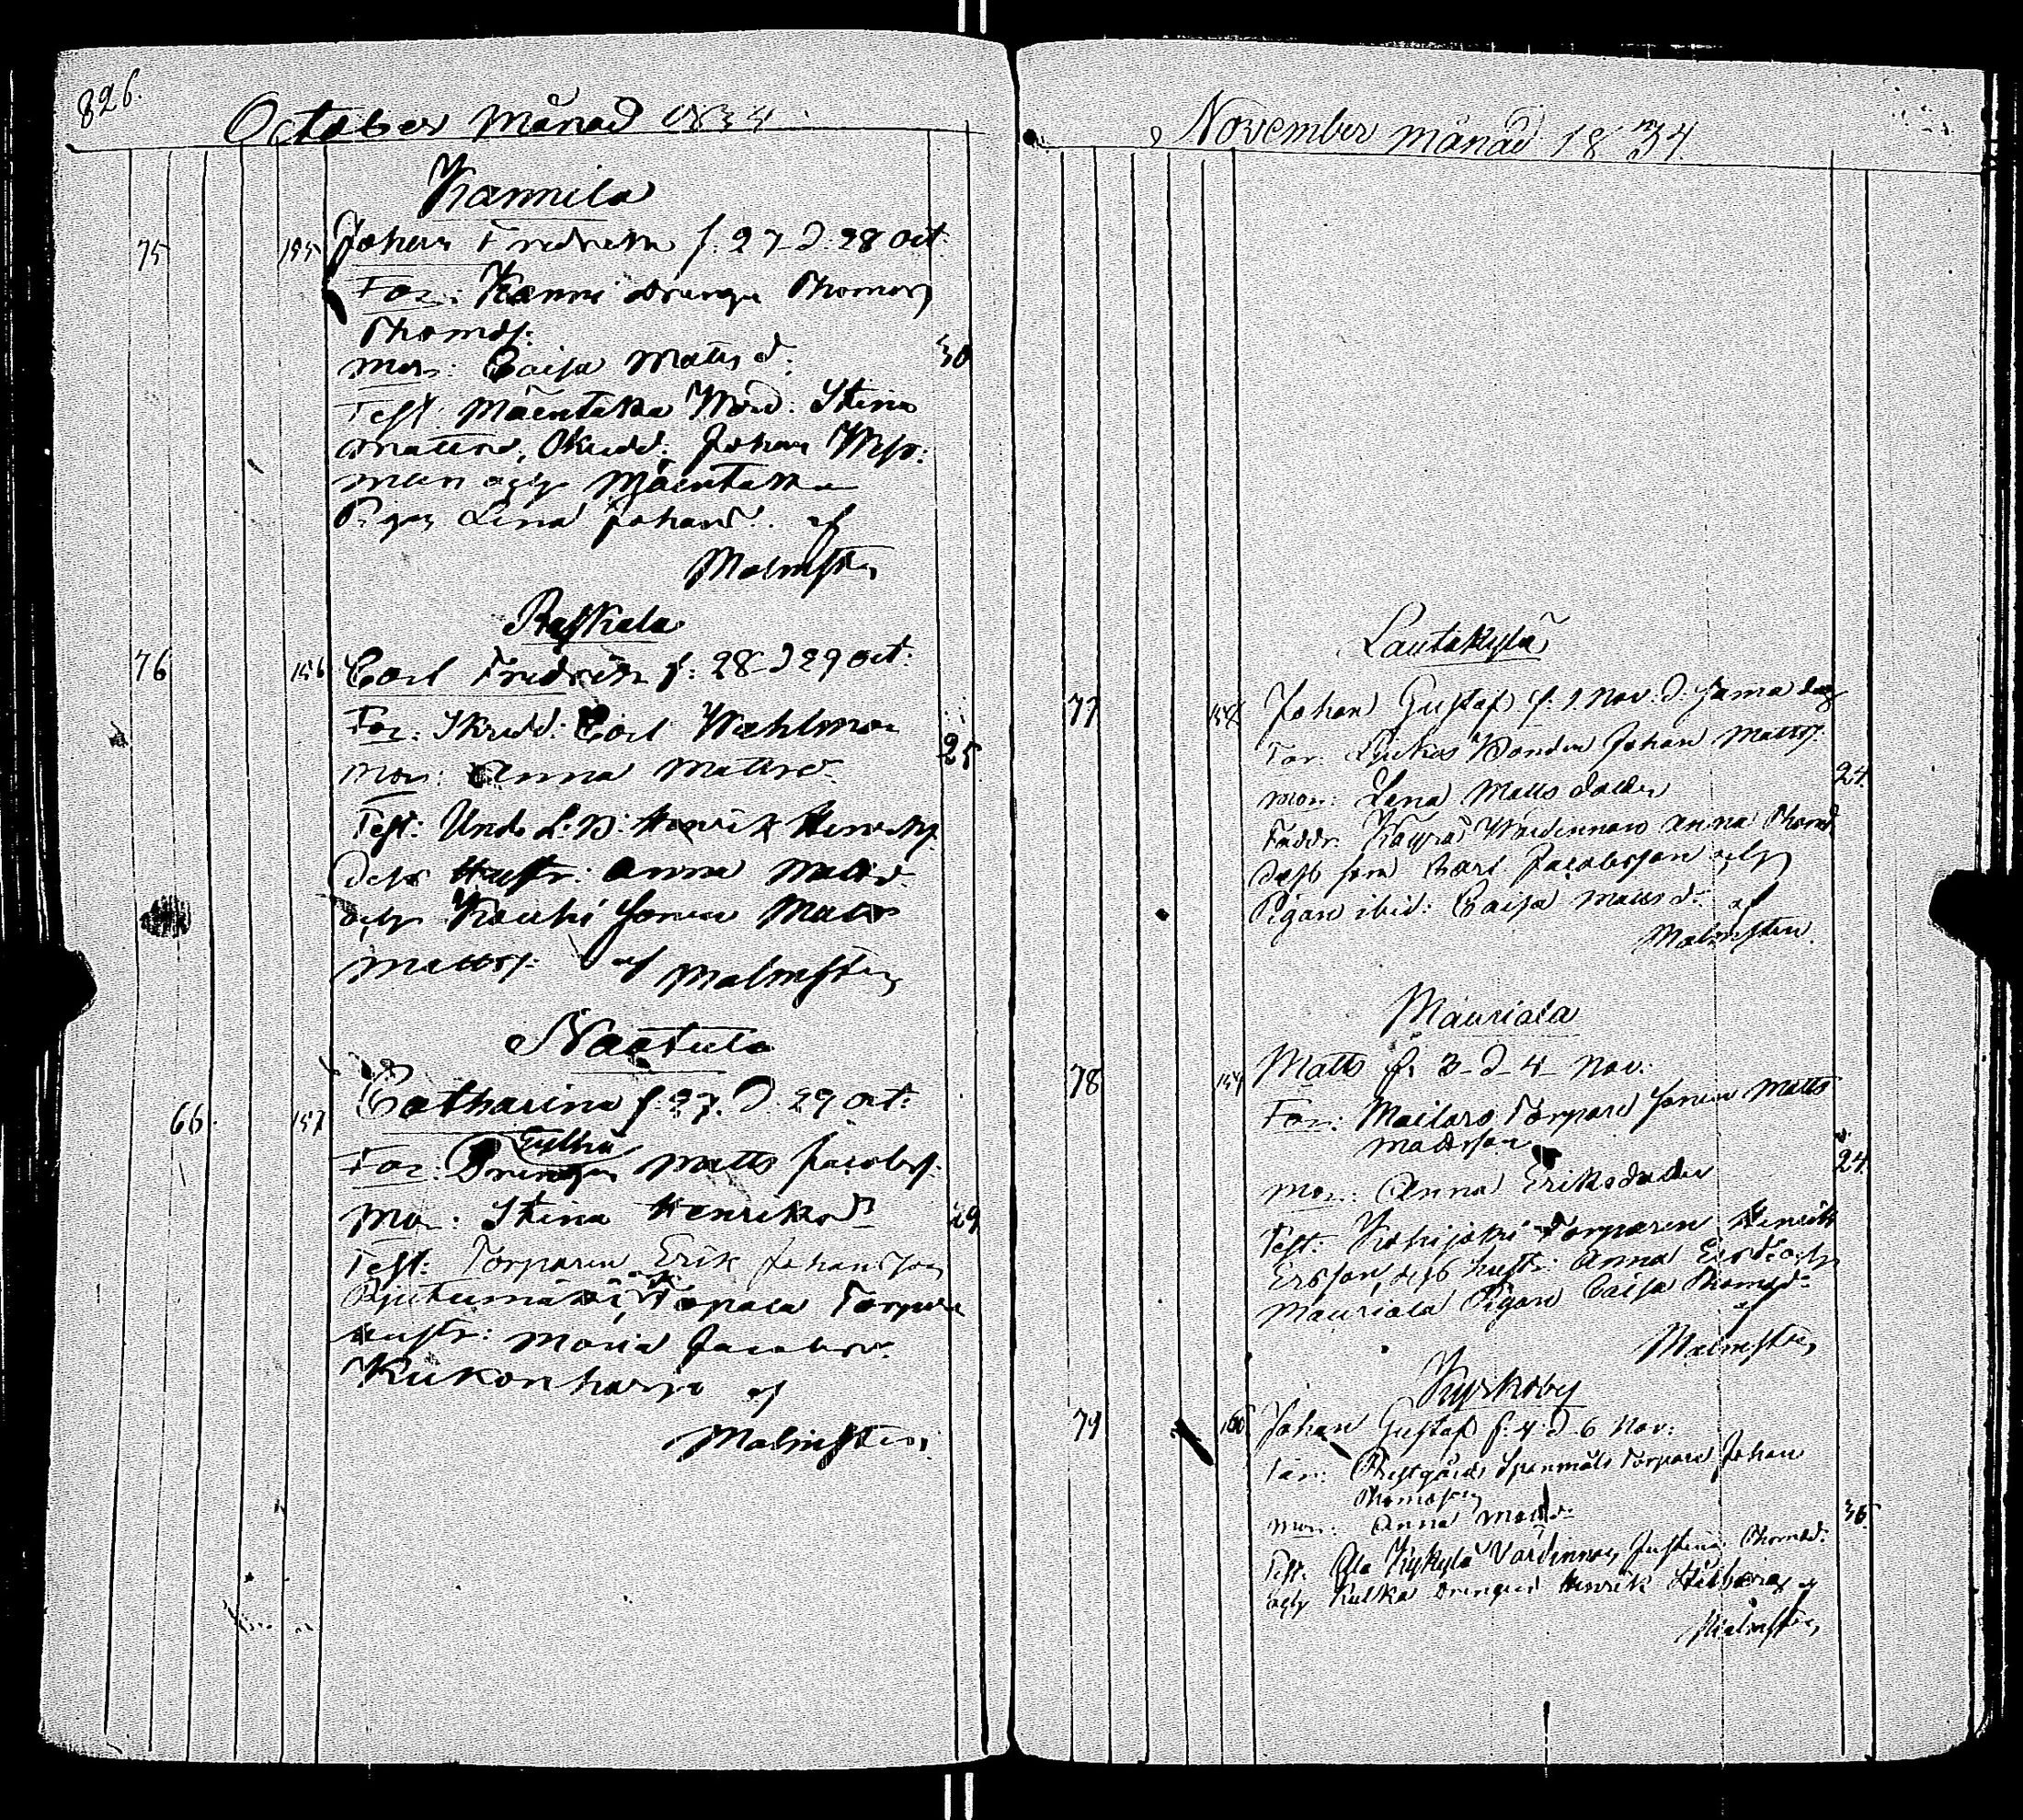 826.
October Månad 1834
Kannila
75 155 Johan Fredrik f. 27 d. 28 Oct.
Far: Kanni Drängen Thomas
Thomass:
Mor: Caisa Matts d. 30
Test: Mäentaka Wärd: Stina
Mattsd,
man och Mäentaka
Pigan Lina Johansd: af
Malmsten
Raskala
76 156 Carl Fredrik f: 28 d 29 Oct:
Far: Skredd: Carl Wahlman
Mor: Anna Mattsd 25
Test: Und. L:B: Henrik Henricss.
dess Hustr: Anna Mattsd
och Kauhi Sonen Matts
Mattss: af Malmsten
Naatula
66 157 Catharina f: 27. d. 29 Oct:
Far: Drängen Matts Jacobss.
Mor: Stina Henriksd 29
Test: Torparen Erik Johansson
Torpare
Hustr: Maria Jacobsd.
Kiikonharju af
Malmsten
November månad 1834
Lautakylä
77 158 Johan Gustaf f: 1 Nov: d: sama dag
Far: Lyckas Bonden Johan Mattss.
Mor: Lena Matts dotter 24
Faddr: Wärdinnan Anna Thomd
dess son Karl Jacobsson och
Pigan ibid: Caisa Mattsd: af
Malmsten
Mauriala
78 159 Matts f. 3 d 4 Nov:
Far: Mailars Torpare Sonen Matts
Mattsson
Mor: Anna Eriksdotter 24
Test: Kokijoki Torparen Henrik
Ersson, dess hustr: Anna Ersd: och
Mauriala Pigan Caisa Thomsd:
af
Malmsten
Kyrkoby
79 160 Johan Gustaf f. 4 d 6 Nov:
Far: Prestgårds Spanmåls Torpare Johan
Thomasson
Mor: Anna Mattsd 36
Test. Kykylä Värdinnan Justina Thomsd:
och Kulka Drängen Henrik Stålberg af
Malmsten